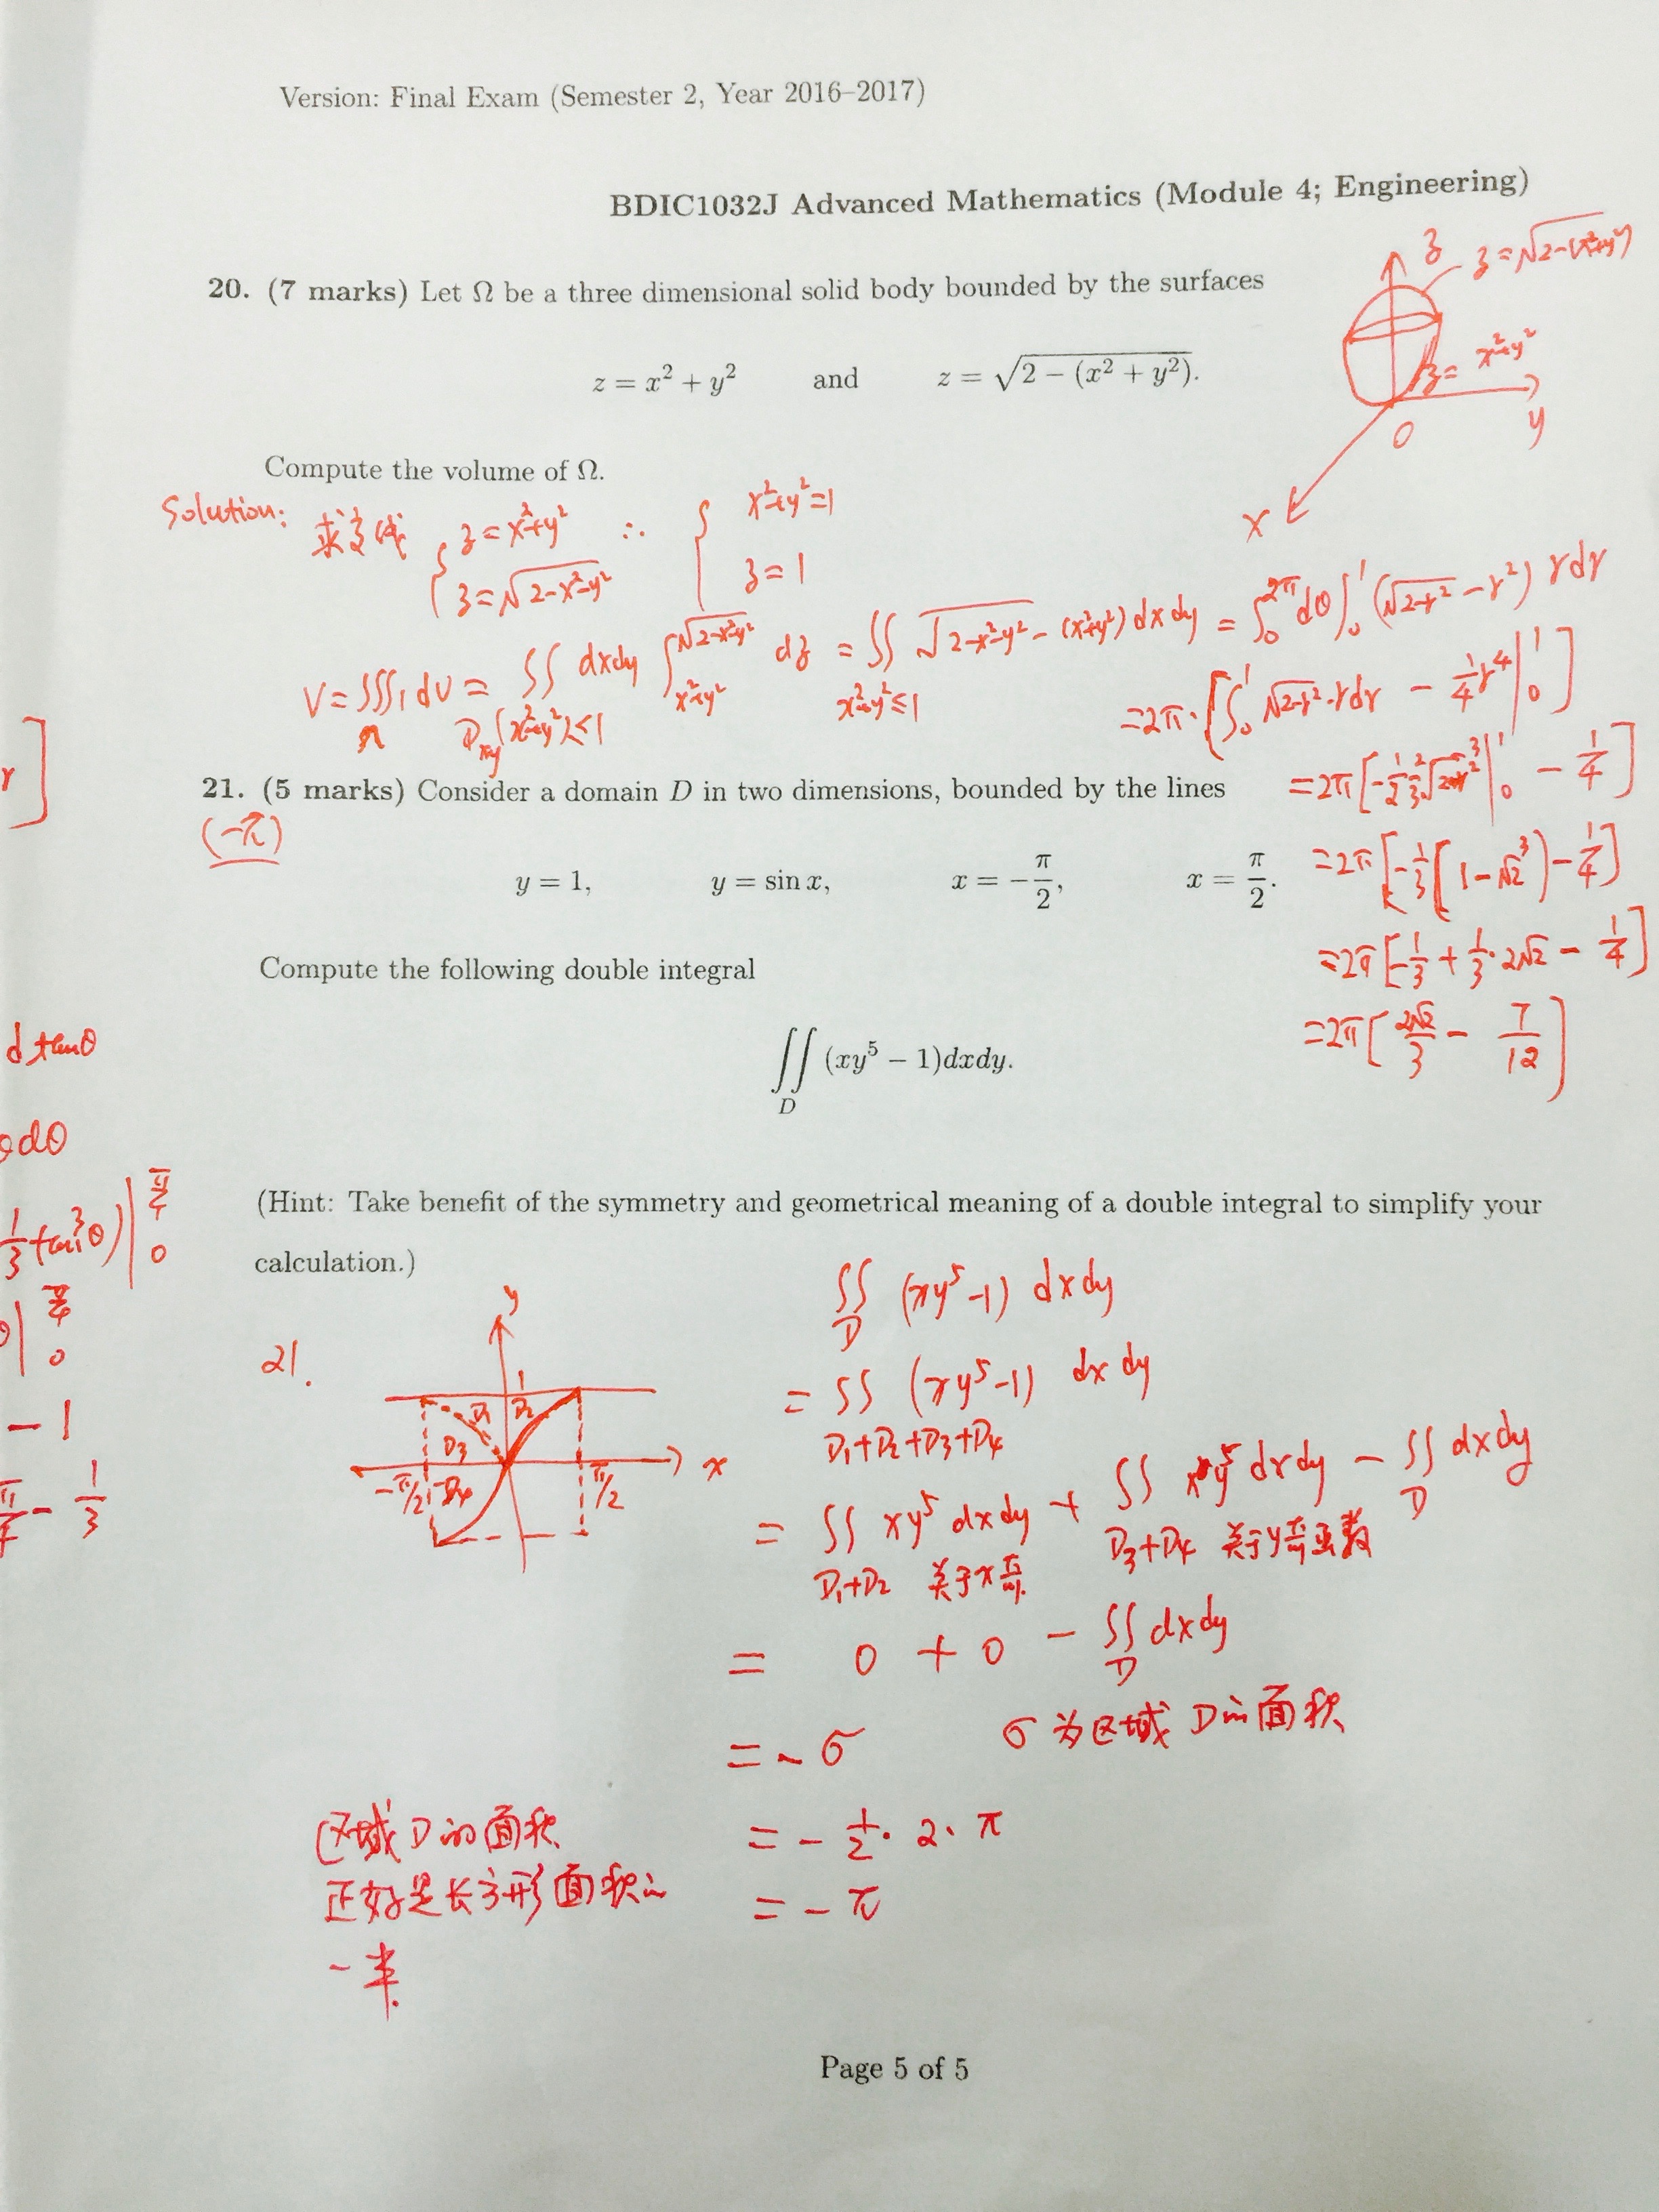 Version: Final Exam (Semester 2, Year 2016–2017)
BDIC1032J Advanced Mathematics (Module 4; Engineering)
z
z = √(2-(x²+y²))
z = x²+y²
O
y
x
20. (7 marks) Let Ω be a three dimensional solid body bounded by the surfaces
z = x² + y² and z = √(2 − (x² + y²)).
Compute the volume of Ω.
Solution:
求交线 { z = x²+y² ∴ { x²+y²=1
z = √(2-x²-y²) z = 1
V = ∭_Ω 1 dv = ∬_{Dxy(x²+y²)≤1} dxdy ∫_{x²+y²}^{√(2-x²-y²)} dz = ∬_{x²+y²≤1} √(2-x²-y²) - (x²+y²) dxdy = ∫_0^{2π} dθ ∫_0^1 (√(2-r²) - r²) r dr
= 2π·[∫_0^1 √(2-r²)·r dr - 1/4 r⁴ |_0^1]
= 2π[-1/2 2/3 √(2-r²)³ |_0^1 - 1/4]
= 2π[-1/3[1-√2³) - 1/4]
= 2π[-1/3 + 1/3·2√2 - 1/4]
= 2π[2√2/3 - 7/12]
21. (5 marks) Consider a domain D in two dimensions, bounded by the lines
(-π)
y = 1, y = sin x, x = −π/2, x = π/2.
Compute the following double integral
∬_D (xy⁵ − 1)dxdy.
(Hint: Take benefit of the symmetry and geometrical meaning of a double integral to simplify your
calculation.)
r]
d tanθ
dθ
1/3 tan³θ) |_0^{π/4}
| π/4
0
- 1
π/4 - 1/3
21.
y
1
D1 D2
D3
D4
-π/2
π/2
x
∬_D (xy⁵-1) dxdy
= ∬_{D1+D2+D3+D4} (xy⁵-1) dx dy
= ∬_{D1+D2} xy⁵ dxdy + ∬_{D3+D4} xy⁵ dxdy - ∬_D dxdy
关于x奇 关于y奇函数
= 0 + 0 - ∬_D dxdy
= - σ σ为区域D的面积
= - 1/2 · 2 · π
= - π
区域D的面积
正好是长方形面积的
一半.
Page 5 of 5